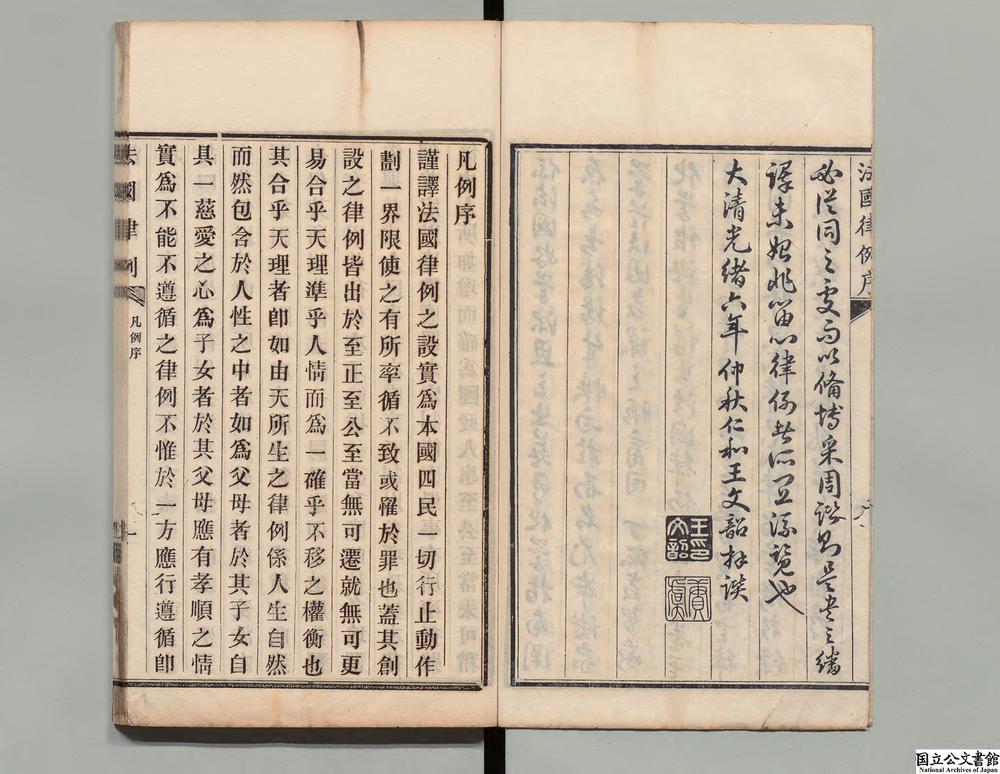 法國律例序
必從同之處而以備博采周諮則是書之繙
譯未始非留心律例者所宜流覽也
大清光緒六年仲秋仁和王文韶拜譔
王文韶印
夔
凡例序
謹譯法國律例之設實爲本國四民一切行止動作
劃一界限使之有所率循不致或罹於罪也蓋其創
設之律例皆出於至正至公至當無可遷就無可更
易合乎天理準乎人情而爲一確乎不移之權衡也
其合乎天理者卽如由天所生之律例係人生自然
而然包含於人性之中者如爲父母者於其子女自
具一慈愛之心爲子女者於其父母應有孝順之情
實爲不能不遵循之律例不惟於一方應行遵循卽
法國律例
凡例序
一
国立公文書館
National Archives of Japan